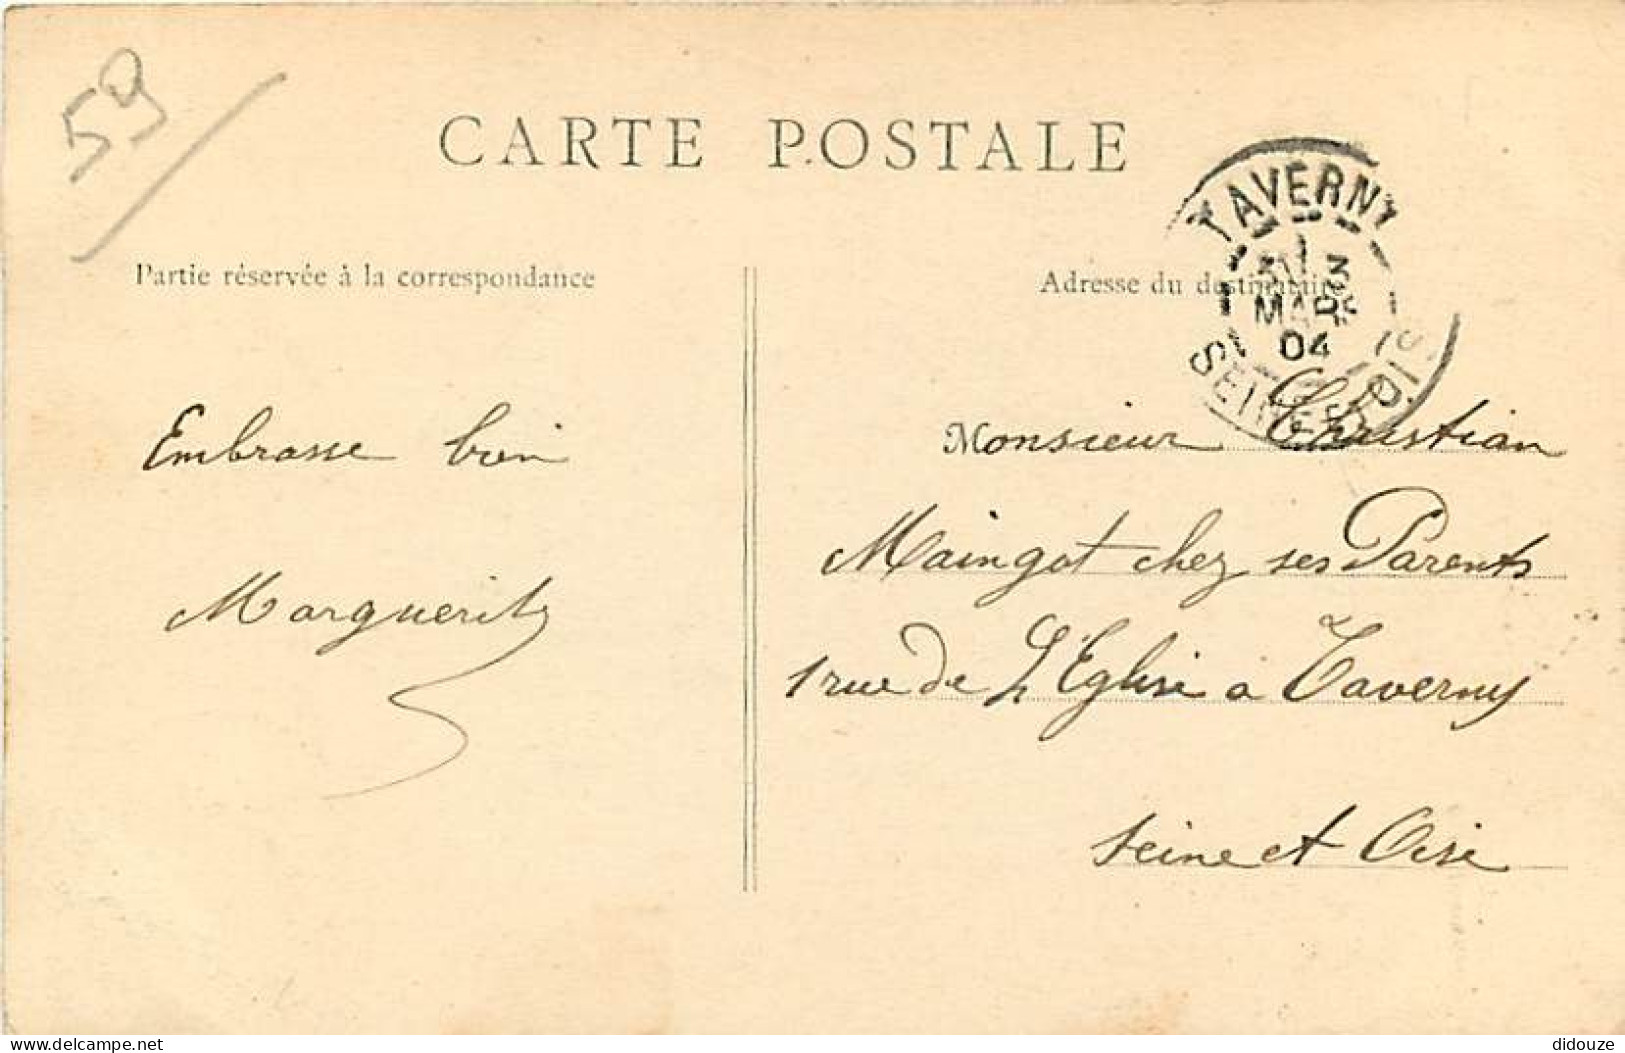 59
CARTE POSTALE
Partie réservée à la correspondance
Adresse du destinataire
TAVERNY
3
MARS
04
SEINE-ET-OISE
Embrasse bien
Marguerite
Monsieur Christian
Maingot chez ses Parents
1 rue de L'Eglise a Taverny
Seine et Oise
Envoyé
didouze